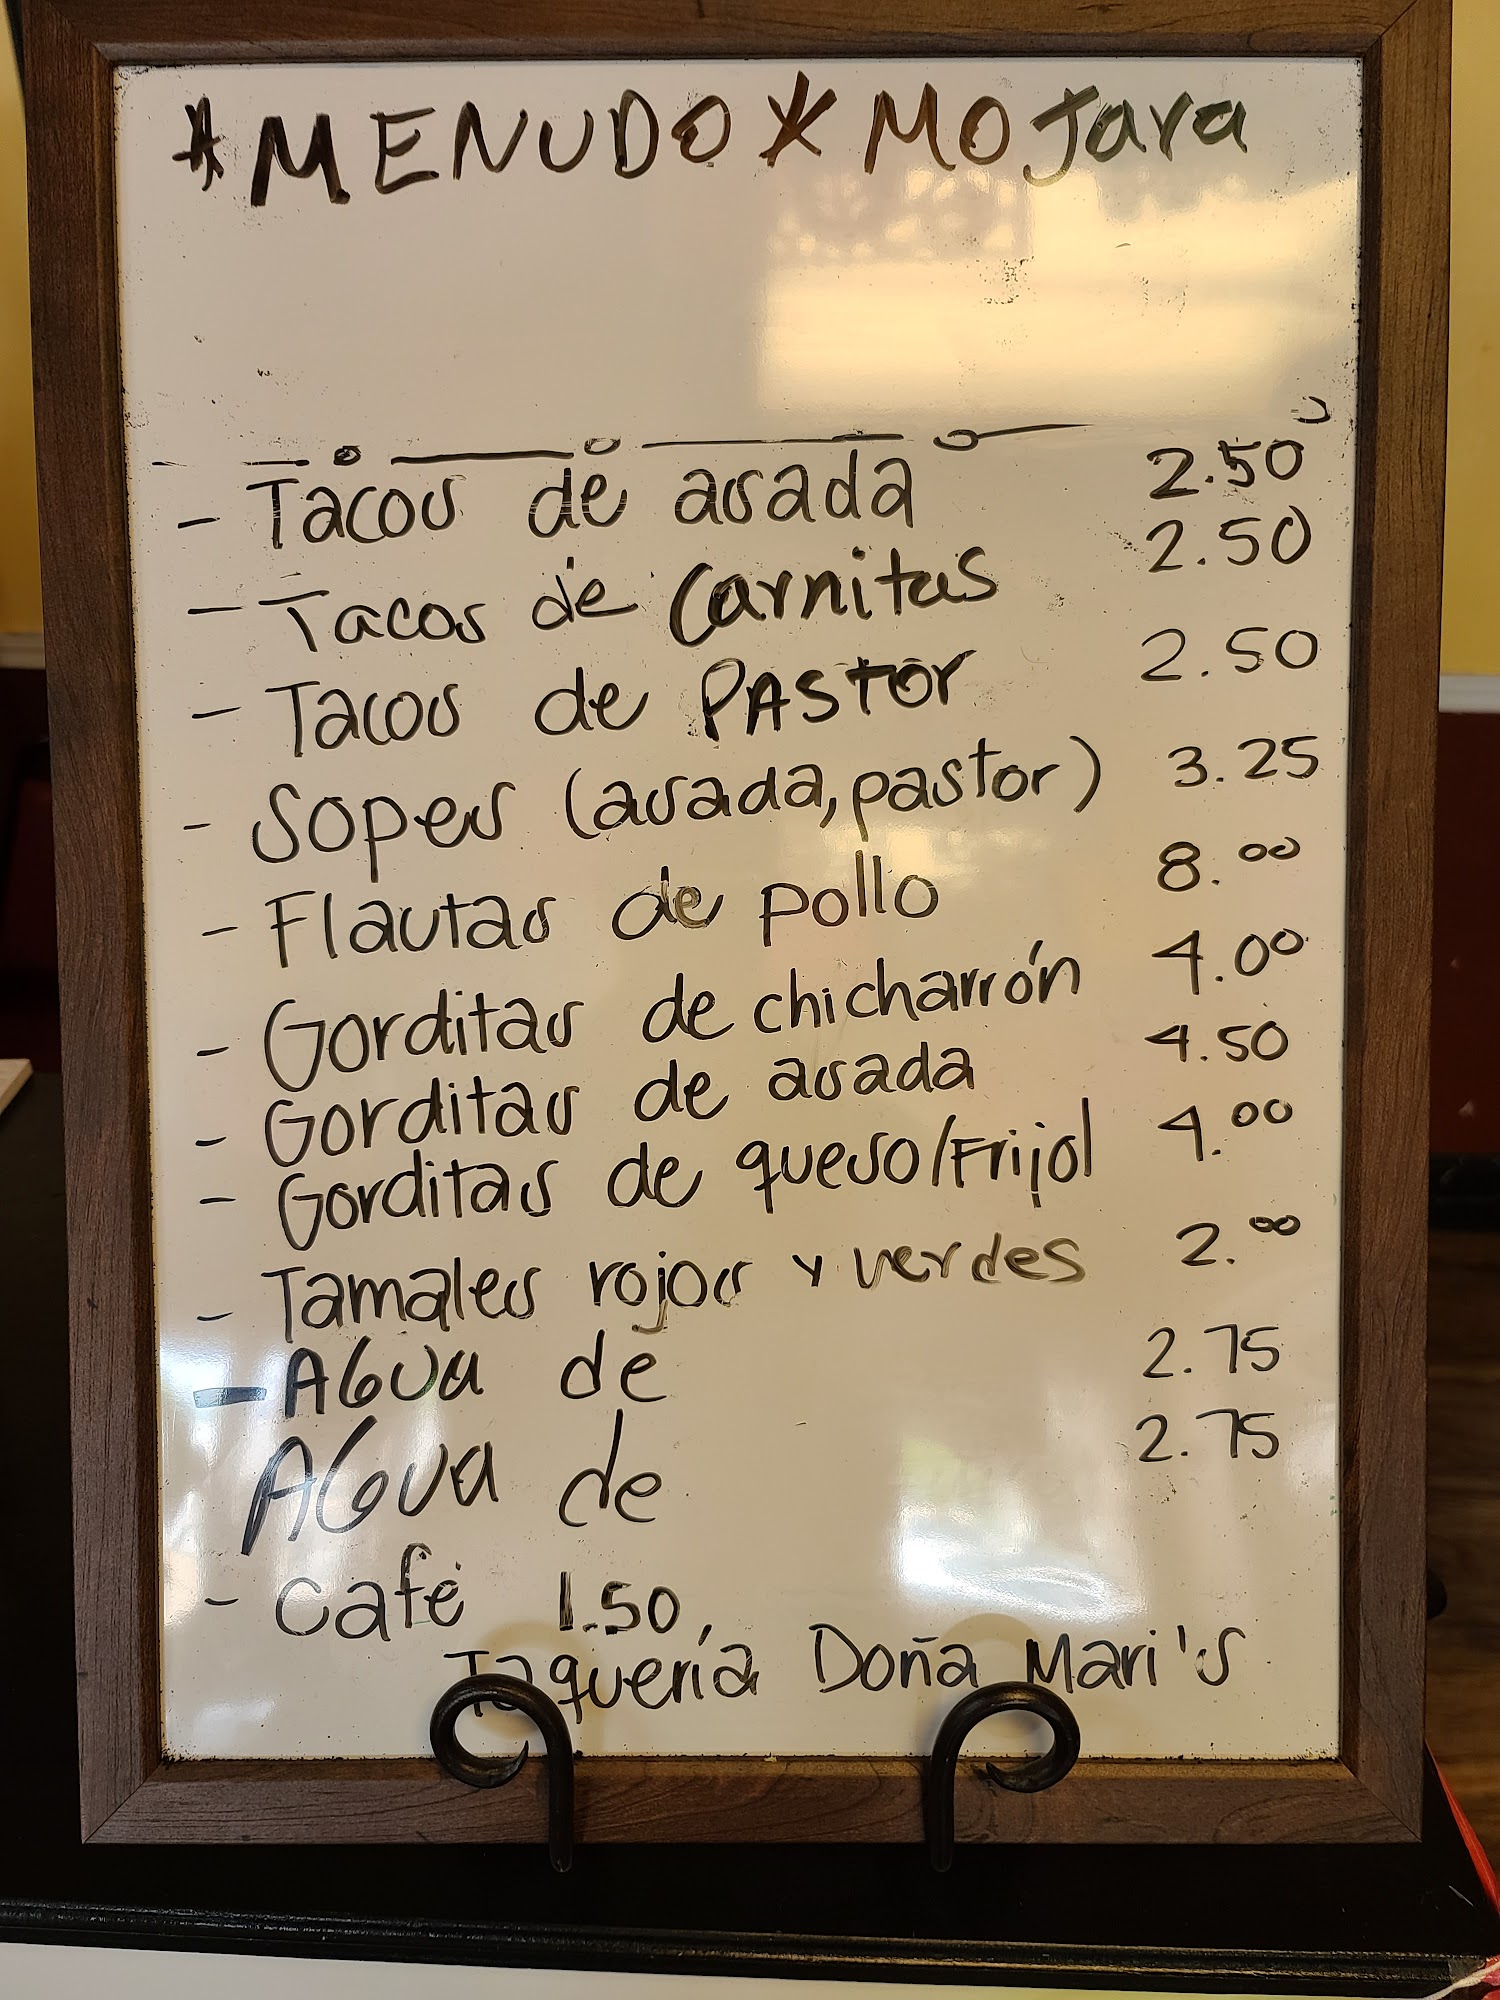 * MENUDO * MOJara
- Tacos de asada 2.50
- Tacos de Carnitas 2.50
- Tacos de PASTOr 2.50
- Sopes (asada, pastor) 3.25
- Flautas de pollo 8.00
- Gorditas de chicharrón 4.00
- Gorditas de asada 4.50
- Gorditas de queso/Frijol 4.00
- Tamales rojos y verdes 2.00
- AGUa de 2.75
AGUa de 2.75
- café 1.50
Taquería Doña Mari's